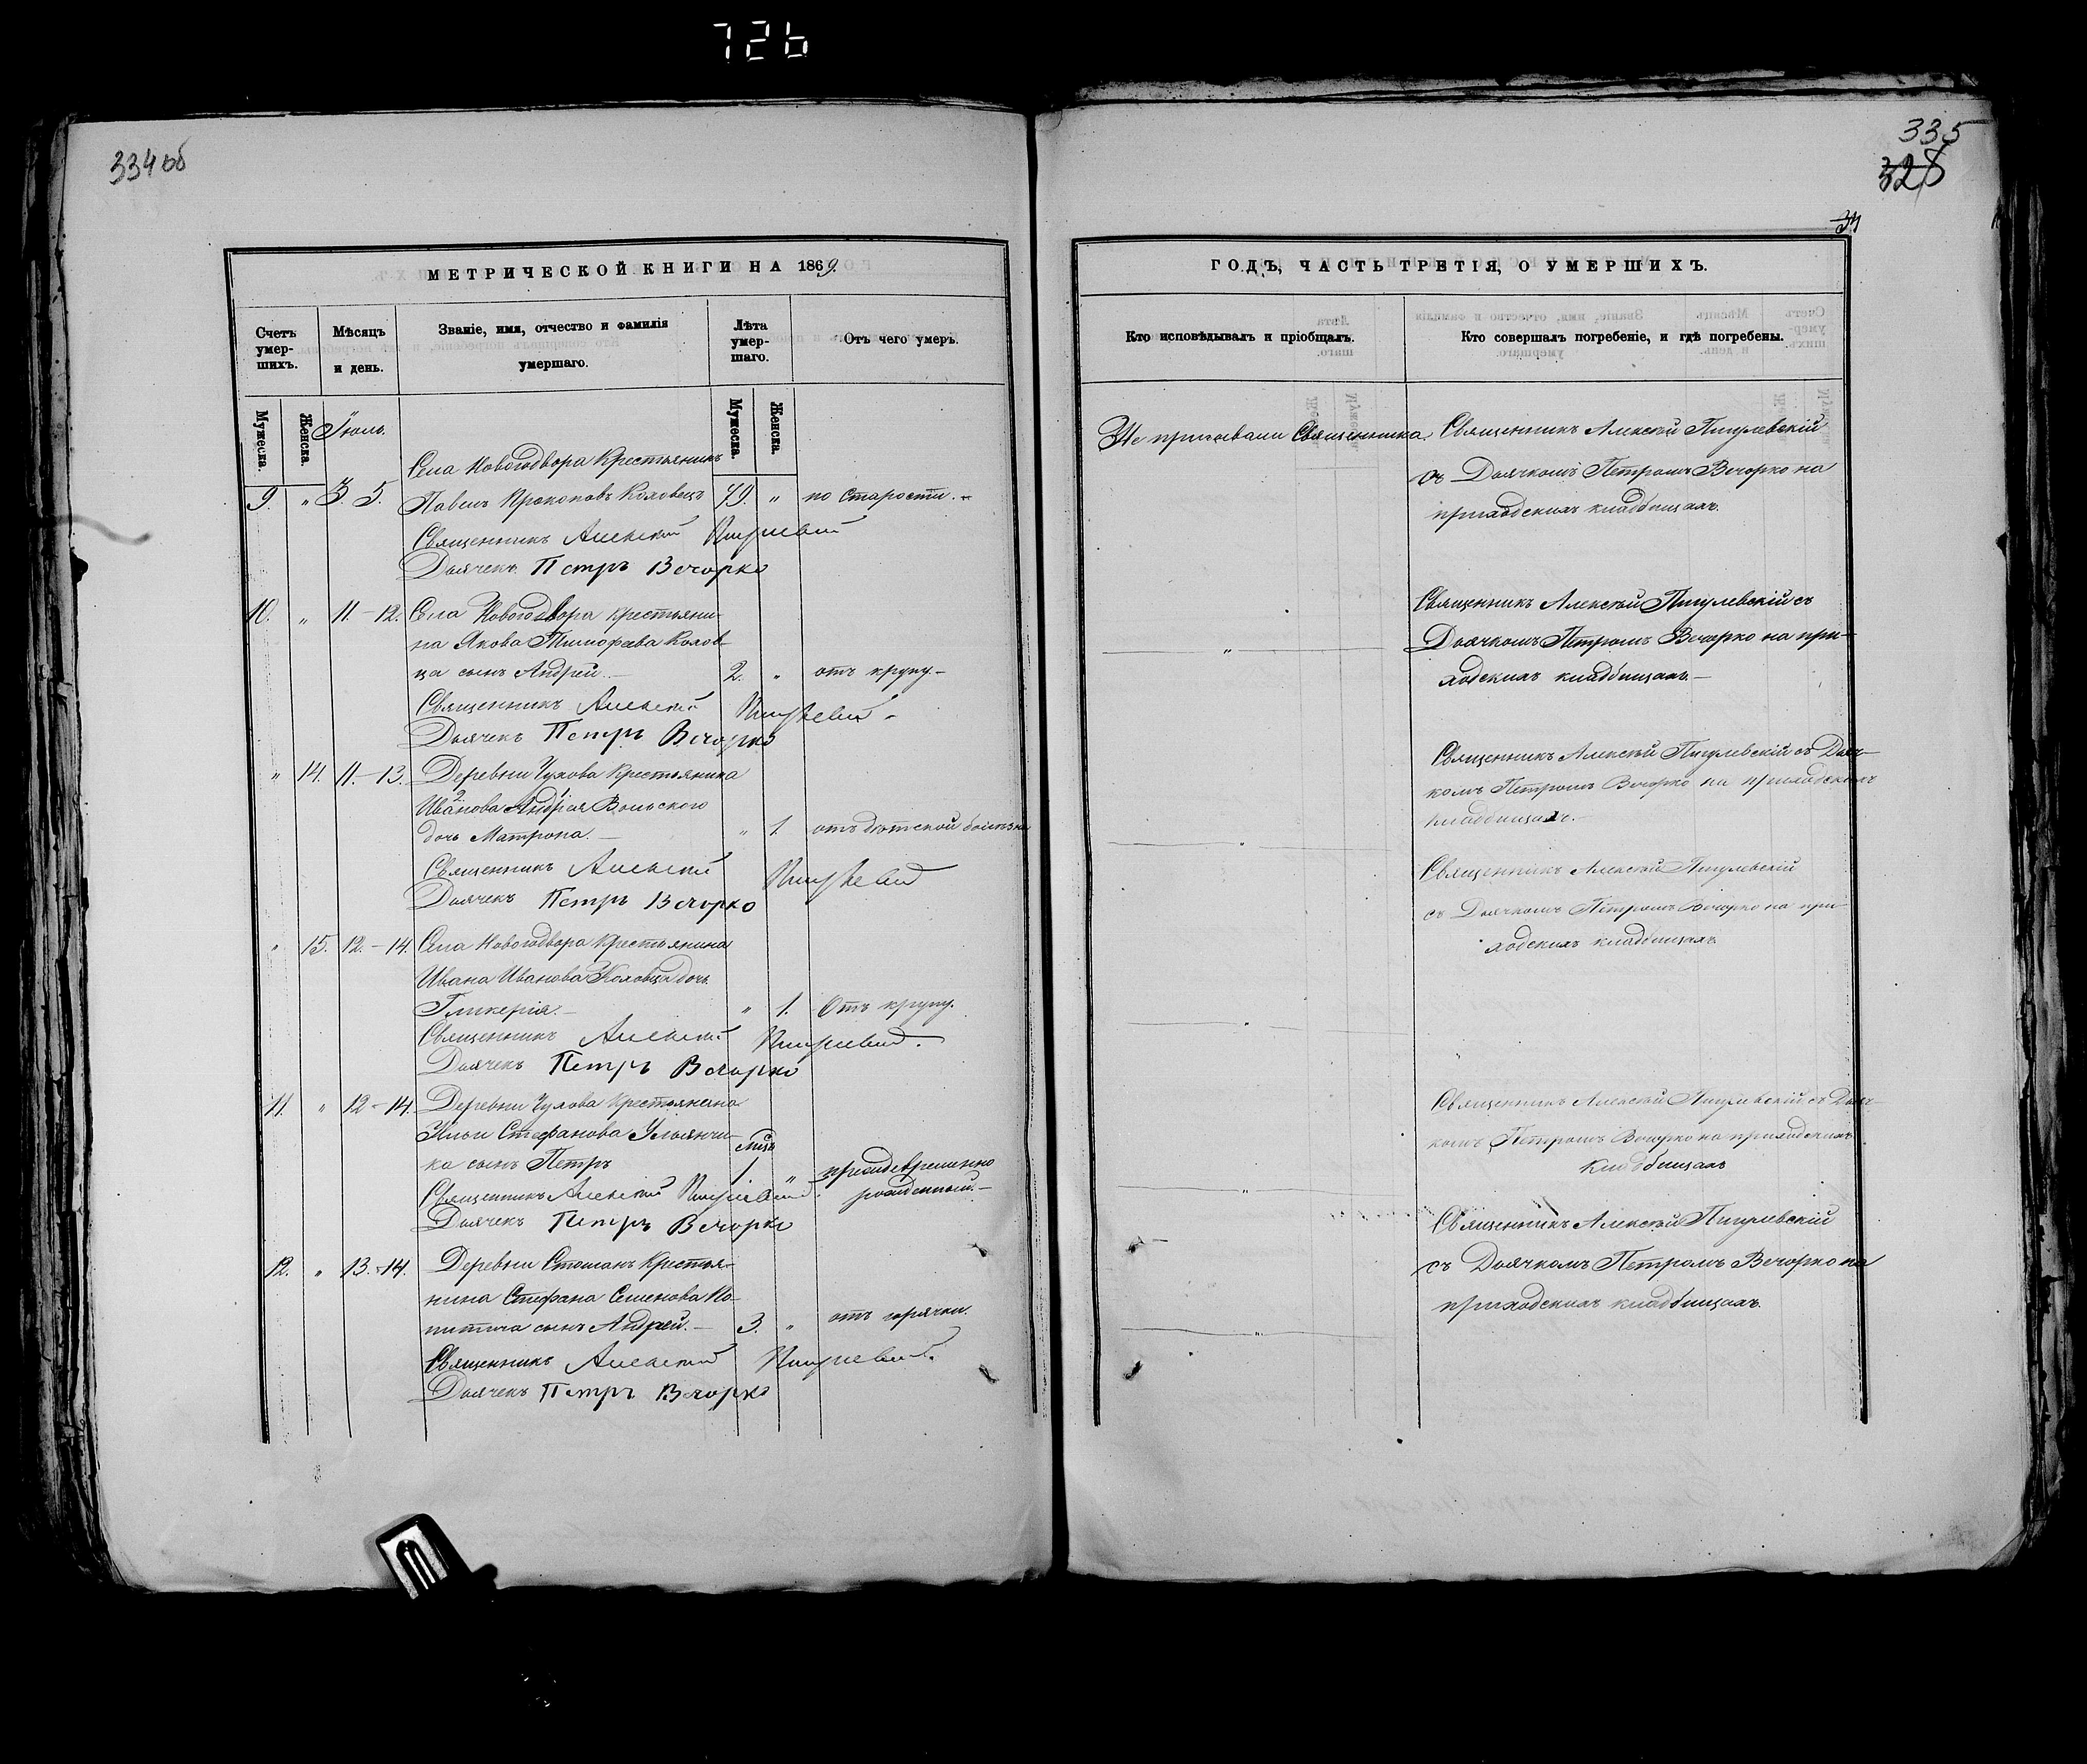 726
334 об
МЕТРИЧЕСКОЙ КНИГИ НА 1869.
Счетъ умер-шихъ.
Мѣсяцъ и день.
Званіе, имя, отчество и фамилія умершаго.
Лѣта умер-шаго.
Отъ чего умеръ.
Мужеска.
Женска.
Мужеска.
Женска.
Іюль.
Села Новогодвора Крестьянинъ
9. " 3. 5. Павелъ Прокоповъ Коховецъ 79. " по старости.
Священникъ Алексѣй Пигулевскій
Дьячекъ Петръ Вечорко
10. " 11.-12. Села Новогодвора крестьяни-
на Якова Тимофѣева Колов-
ца сынъ Андрей. 2. " отъ крупу.
Священникъ Алексѣй Пигулевскій
Дьячекъ Петръ Вечорко
" 14. 11.-13. Деревни Чухова Крестьянина
Иванова Андрея Вольского
дочь Матрона. " 1. отъ дѣтской болѣзни
Священникъ Алексѣй Пигулевскій
Дьячекъ Петръ Вечорко
" 15. 12.-14. Села Новогодвора Крестьянина
Ивана Иванова Коловца дочь
Гликерія. " 1. Отъ крупу.
Священникъ Алексѣй Пигулевскій.
Дьячекъ Петръ Вечорко
11. " 12-14. Деревни Чухова Крестьянина
Ильи Стефанова Ульянчи-
ка сынъ Петръ мѣсц. 1 " преждевременно
рожденный.
Священникъ Алексѣй Пигулевскій.
Дьячекъ Петръ Вечорко
12. " 13.-14. Деревни Стошанъ Крестья-
нина Стефана Семенова
сынъ Андрей. 3. " отъ горячки.
Священникъ Алексѣй Пигулевскій.
Дьячекъ Петръ Вечорко
335
328
34
ГОДЪ, ЧАСТЬ ТРЕТІЯ, О УМЕРШИХЪ.
Кто исповѣдывалъ и пріобщалъ.
Кто совершалъ погребеніе, и гдѣ погребены.
Не призывали Священника.
Священникъ Алексѣй Пигулевскій
съ Дьячкомъ Петромъ Вечорко на
приходскихъ кладбищахъ.
"
Священникъ Алексѣй Пигулевскій съ
Дьячкомъ Петромъ Вечорко на при-
ходскихъ кладбищахъ.
"
Священникъ Алексѣй Пигулевскій съ Дьяч-
комъ Петромъ Вечорко на приходскихъ
кладбищахъ.
"
Священникъ Алексѣй Пигулевскій
съ Дьячкомъ Петромъ Вечорко на при-
ходскихъ кладбищахъ
"
Священникъ Алексѣй Пигулевскій съ Дьяч-
комъ Петромъ Вечорко на приходскихъ
кладбищахъ
"
Священникъ Алексѣй Пигулевскій
съ Дьячкомъ Петромъ Вечорко на
приходскихъ кладбищахъ.